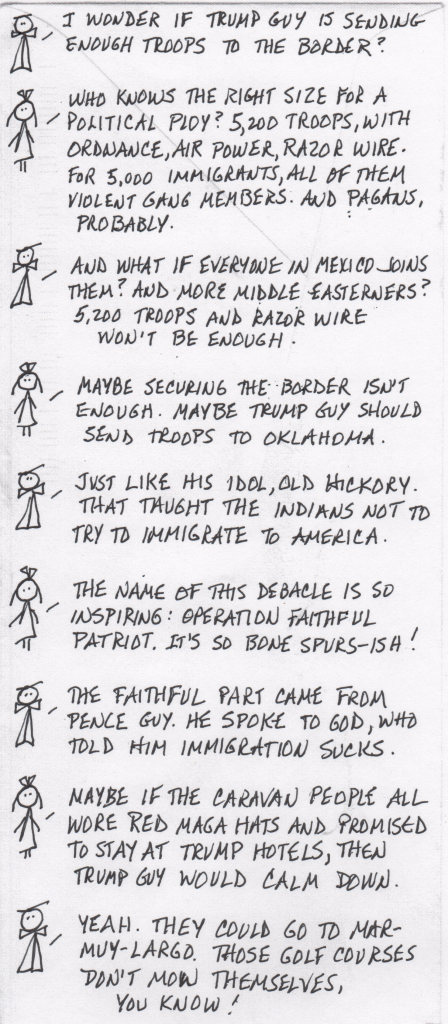 I WONDER IF TRUMP GUY IS SENDING
ENOUGH TROOPS TO THE BORDER?
WHO KNOWS THE RIGHT SIZE FOR A
POLITICAL PLOY? 5,200 TROOPS, WITH
ORDNANCE, AIR POWER, RAZOR WIRE.
FOR 5,000 IMMIGRANTS, ALL OF THEM
VIOLENT GANG MEMBERS. AND PAGANS,
PROBABLY.
AND WHAT IF EVERYONE IN MEXICO JOINS
THEM? AND MORE MIDDLE EASTERNERS?
5,200 TROOPS AND RAZOR WIRE
WON'T BE ENOUGH.
MAYBE SECURING THE BORDER ISN'T
ENOUGH. MAYBE TRUMP GUY SHOULD
SEND TROOPS TO OKLAHOMA.
JUST LIKE HIS IDOL, OLD HICKORY.
THAT TAUGHT THE INDIANS NOT TO
TRY TO IMMIGRATE TO AMERICA.
THE NAME OF THIS DEBACLE IS SO
INSPIRING: OPERATION FAITHFUL
PATRIOT. IT'S SO BONE SPURS-ISH!
THE FAITHFUL PART CAME FROM
PENCE GUY. HE SPOKE TO GOD, WHO
TOLD HIM IMMIGRATION SUCKS.
MAYBE IF THE CARAVAN PEOPLE ALL
WORE RED MAGA HATS AND PROMISED
TO STAY AT TRUMP HOTELS, THEN
TRUMP GUY WOULD CALM DOWN.
YEAH. THEY COULD GO TO MAR-
MUY-LARGO. THOSE GOLF COURSES
DON'T MOW THEMSELVES,
YOU KNOW!